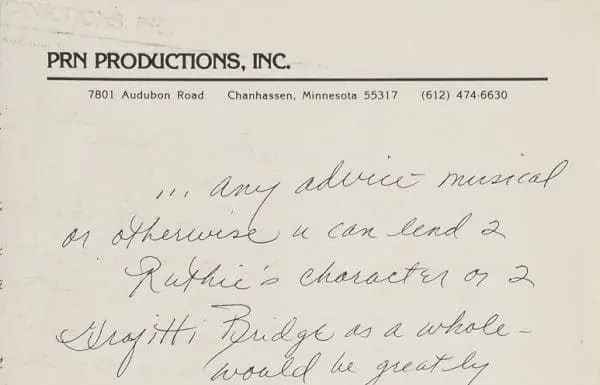 PRN PRODUCTIONS, INC.
7801 Audubon Road Chanhassen, Minnesota 55317 (612) 474-6630
... any advice musical
or otherwise u can lend 2
Ruthie's character or 2
Grafitti Bridge as a whole -
would be greatly